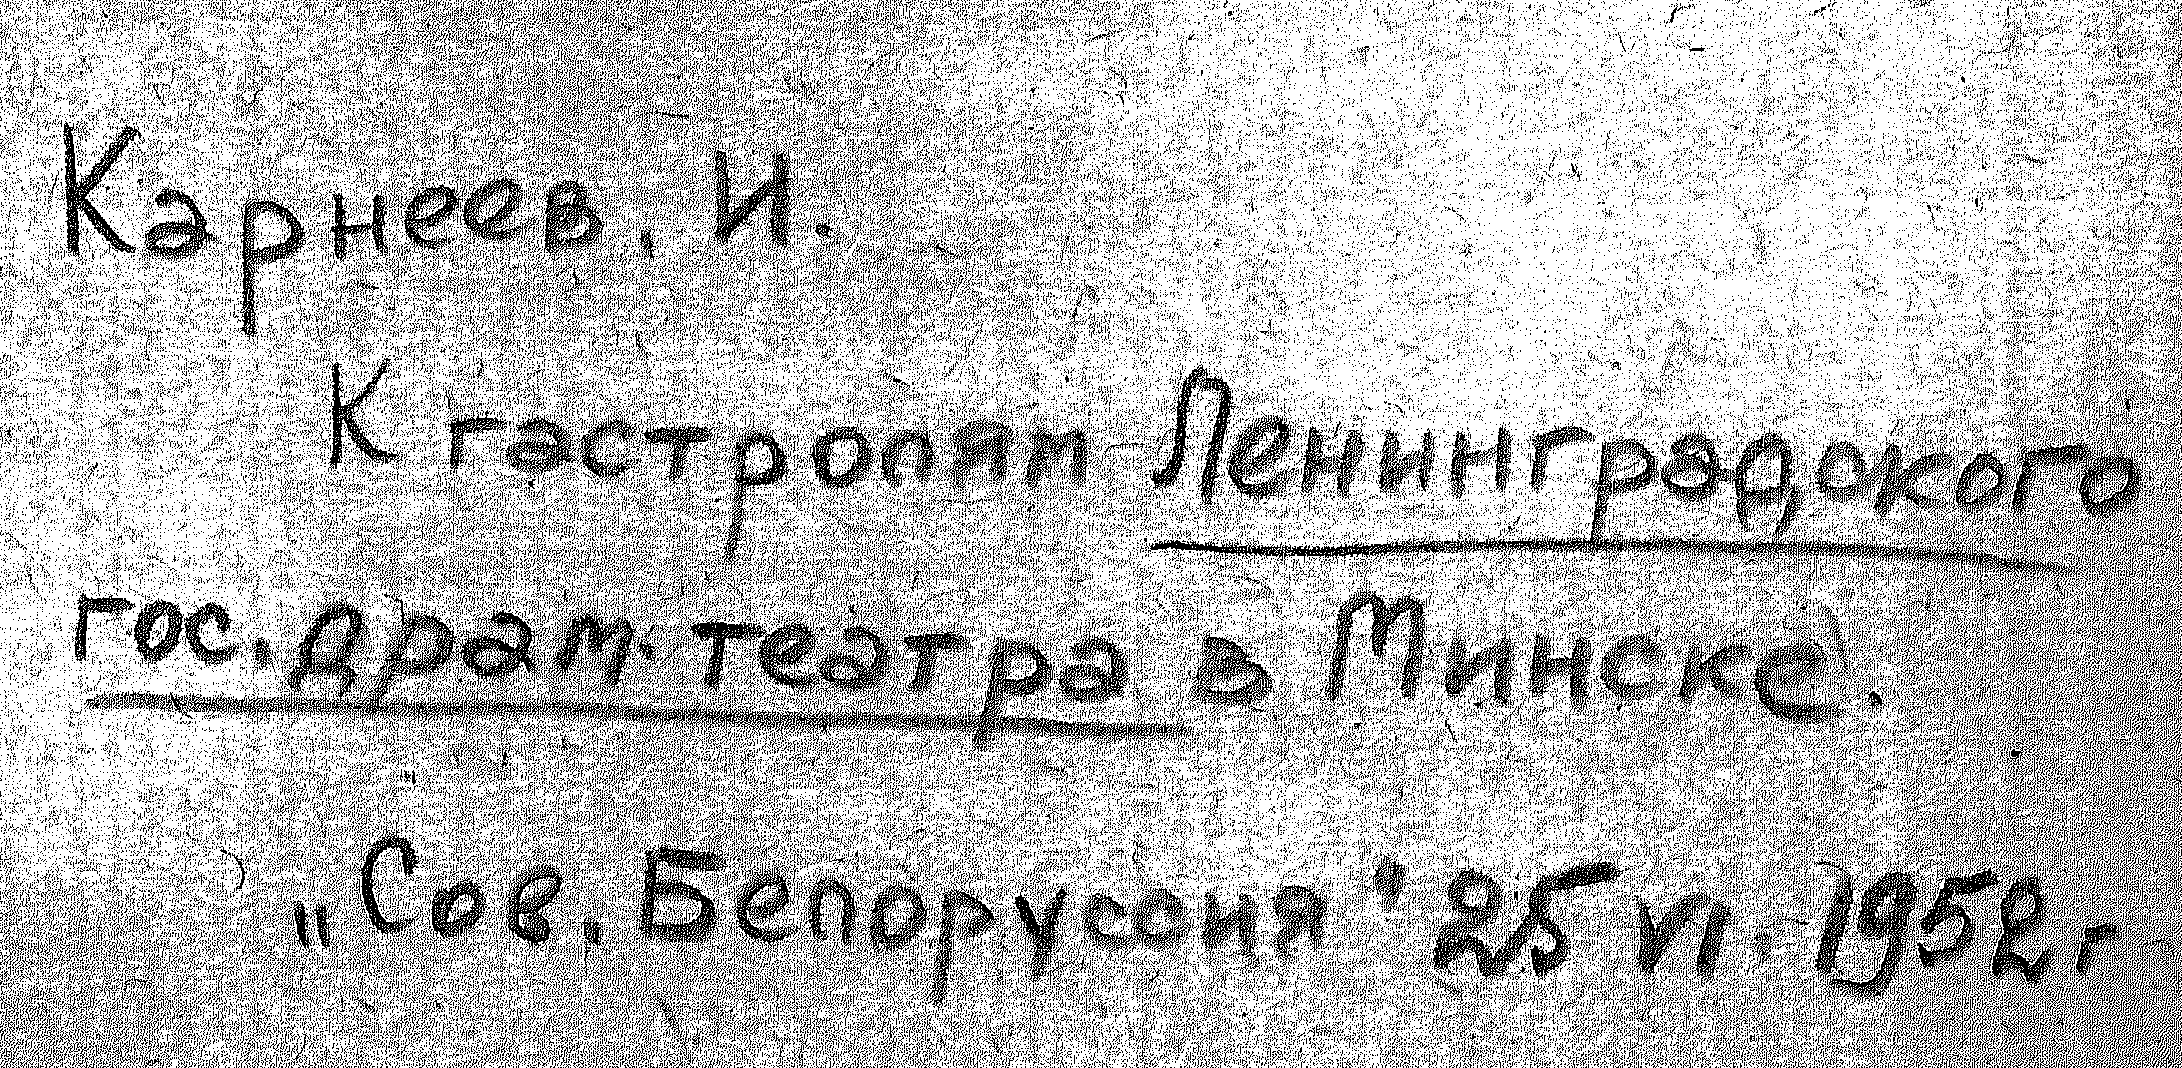 Карнеев, И.
К гастролям Ленинградского
гос. драм. театра в Минске.
"Сов. Белоруссия" 25 VI. 1952 г